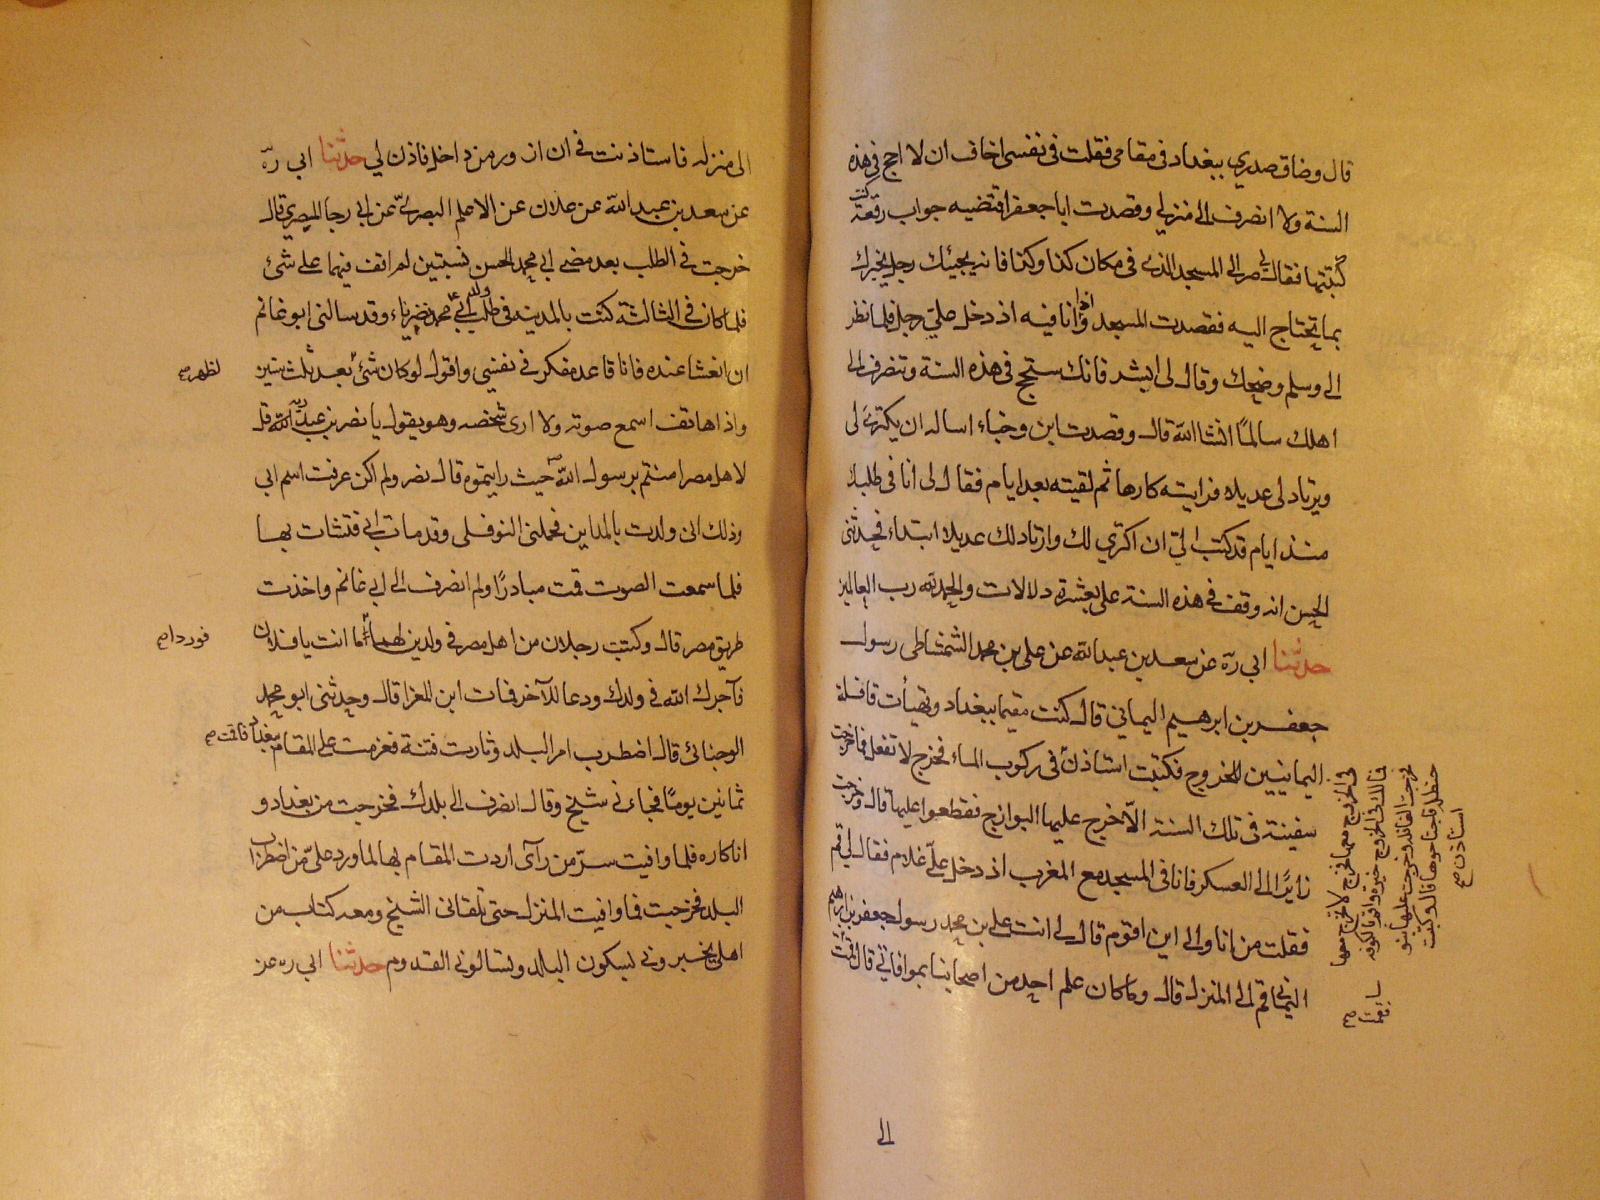 قال وضاق صدري ببغداد في مقامي فقلت في نفسي اخاف ان لا احج في هذه
السنة ولا انصرف الى منزلي وقصدت ابا جعفر اقتضيه جواب رقعة كنت
كتبتها فقال لي صر الى المسجد الذي في مكان كذا وكذا فانه يجيئك رجل يخبرك
بما تحتاج اليه فقصدت المسجد وانا فيه اذ دخل علي رجل فلما نظر
الي وسلم وضحك وقال لي ابشر فانك ستحج في هذه السنة وتنصرف الى
اهلك سالمًا انشا الله قال وقصدت ابن وجناء اساله ان يكتري لي
ويرتاد لي عديلا فرايته كارها ثم لقيته بعد ايام فقال لي انا في طلبك
منذ ايام قد كتب الي ان اكتري لك وارتاد لك عديلا ابتداء فحدثني
الحسن انه وقف في هذه السنة على عشرة دلالات والحمد لله رب العالمين
حدثنا ابي ره عن سعد بن عبد الله عن علي بن محمد الشمشاطي رسول
جعفر بن ابرهيم اليماني قال كنت مقيما ببغداد وتهيأت قافلة
اليمانيين للخروج فكتبت استاذن في ركوب الماء فخرج لا تفعل فما خرجت
سفينة في تلك السنة الا خرج عليها البوارج فقطعوا عليها قال وخرجت
زايرًا الى العسكر فانا في المسجد مع المغرب اذ دخل علي غلام فقال لي قم
فقلت من انا والى اين اقوم قال لي انت علي بن محمد رسول جعفر بن ابرهيم
اليماني قم الى المنزل قال وما كان علم احد من اصحابنا بموافاتي قال فقمت
في الخروج معها فخرج لا تخرج معها
فما لك في الخروج خيرة واقم بالكوفة
فخرجت القافلة وخرجت عليها بنو
حنظلة فاجتاحوها قال وكتبت
استاذن صح
فقمت صح
الى
الى منزله فاستاذنت في ان ازور من داخل فاذن لي حدثنا ابي ره
عن سعد بن عبد الله عن علان عن الاعلم البصري عن ابي رجا المصري قال
خرجت في الطلب بعد مضي ابي محمد الحسن بسنتين لم اقف فيهما على شئ
فلما كان في الثالثة كنت بالمدينة في طلب ولد ابي محمد بصرياء وقد سالني ابو غانم
ان اتعشا عنده فانا قاعد مفكر في نفسي واقول لو كان شئ بعد ثلث سنين
لظهر صح
واذا هاتف اسمع صوته ولا ارى شخصه وهو يقول يا نصر بن عبد ربه قل
لاهل مصر امنتم برسول الله حيث رايتموه قال نصر ولم اكن عرفت اسم ابي
وذلك اني ولدت بالمداين فحملني النوفلي وقد مات ابي فنشات بها
فلما سمعت الصوت قمت مبادرًا ولم انصرف الى ابي غانم واخذت
طريق مصر قال وكتب رجلان من اهل مصر في ولدين لهما اما انت يا فلان
فورد صح
فآجرك الله في ولدك ودعا للآخر فمات ابن المعزا قال وحدثني ابو محمد
الوجنائي قال اضطرب امر البلد وثارت فتنة فعزمت على المقام ببغداد فاقمت صح
ثمانين يومًا فجاءني شيخ وقال انصرف الى بلدك فخرجت من بغداد و
انا كاره فلما وافيت سر من رآى اردت المقام بها لما ورد علي من اضطراب
البلد فخرجت فما وافيت المنزل حتى تلقاني الشيخ ومعه كتاب من
اهلي يخبروني بسكون البلد ويسالوني القدوم حدثنا ابي ره عن